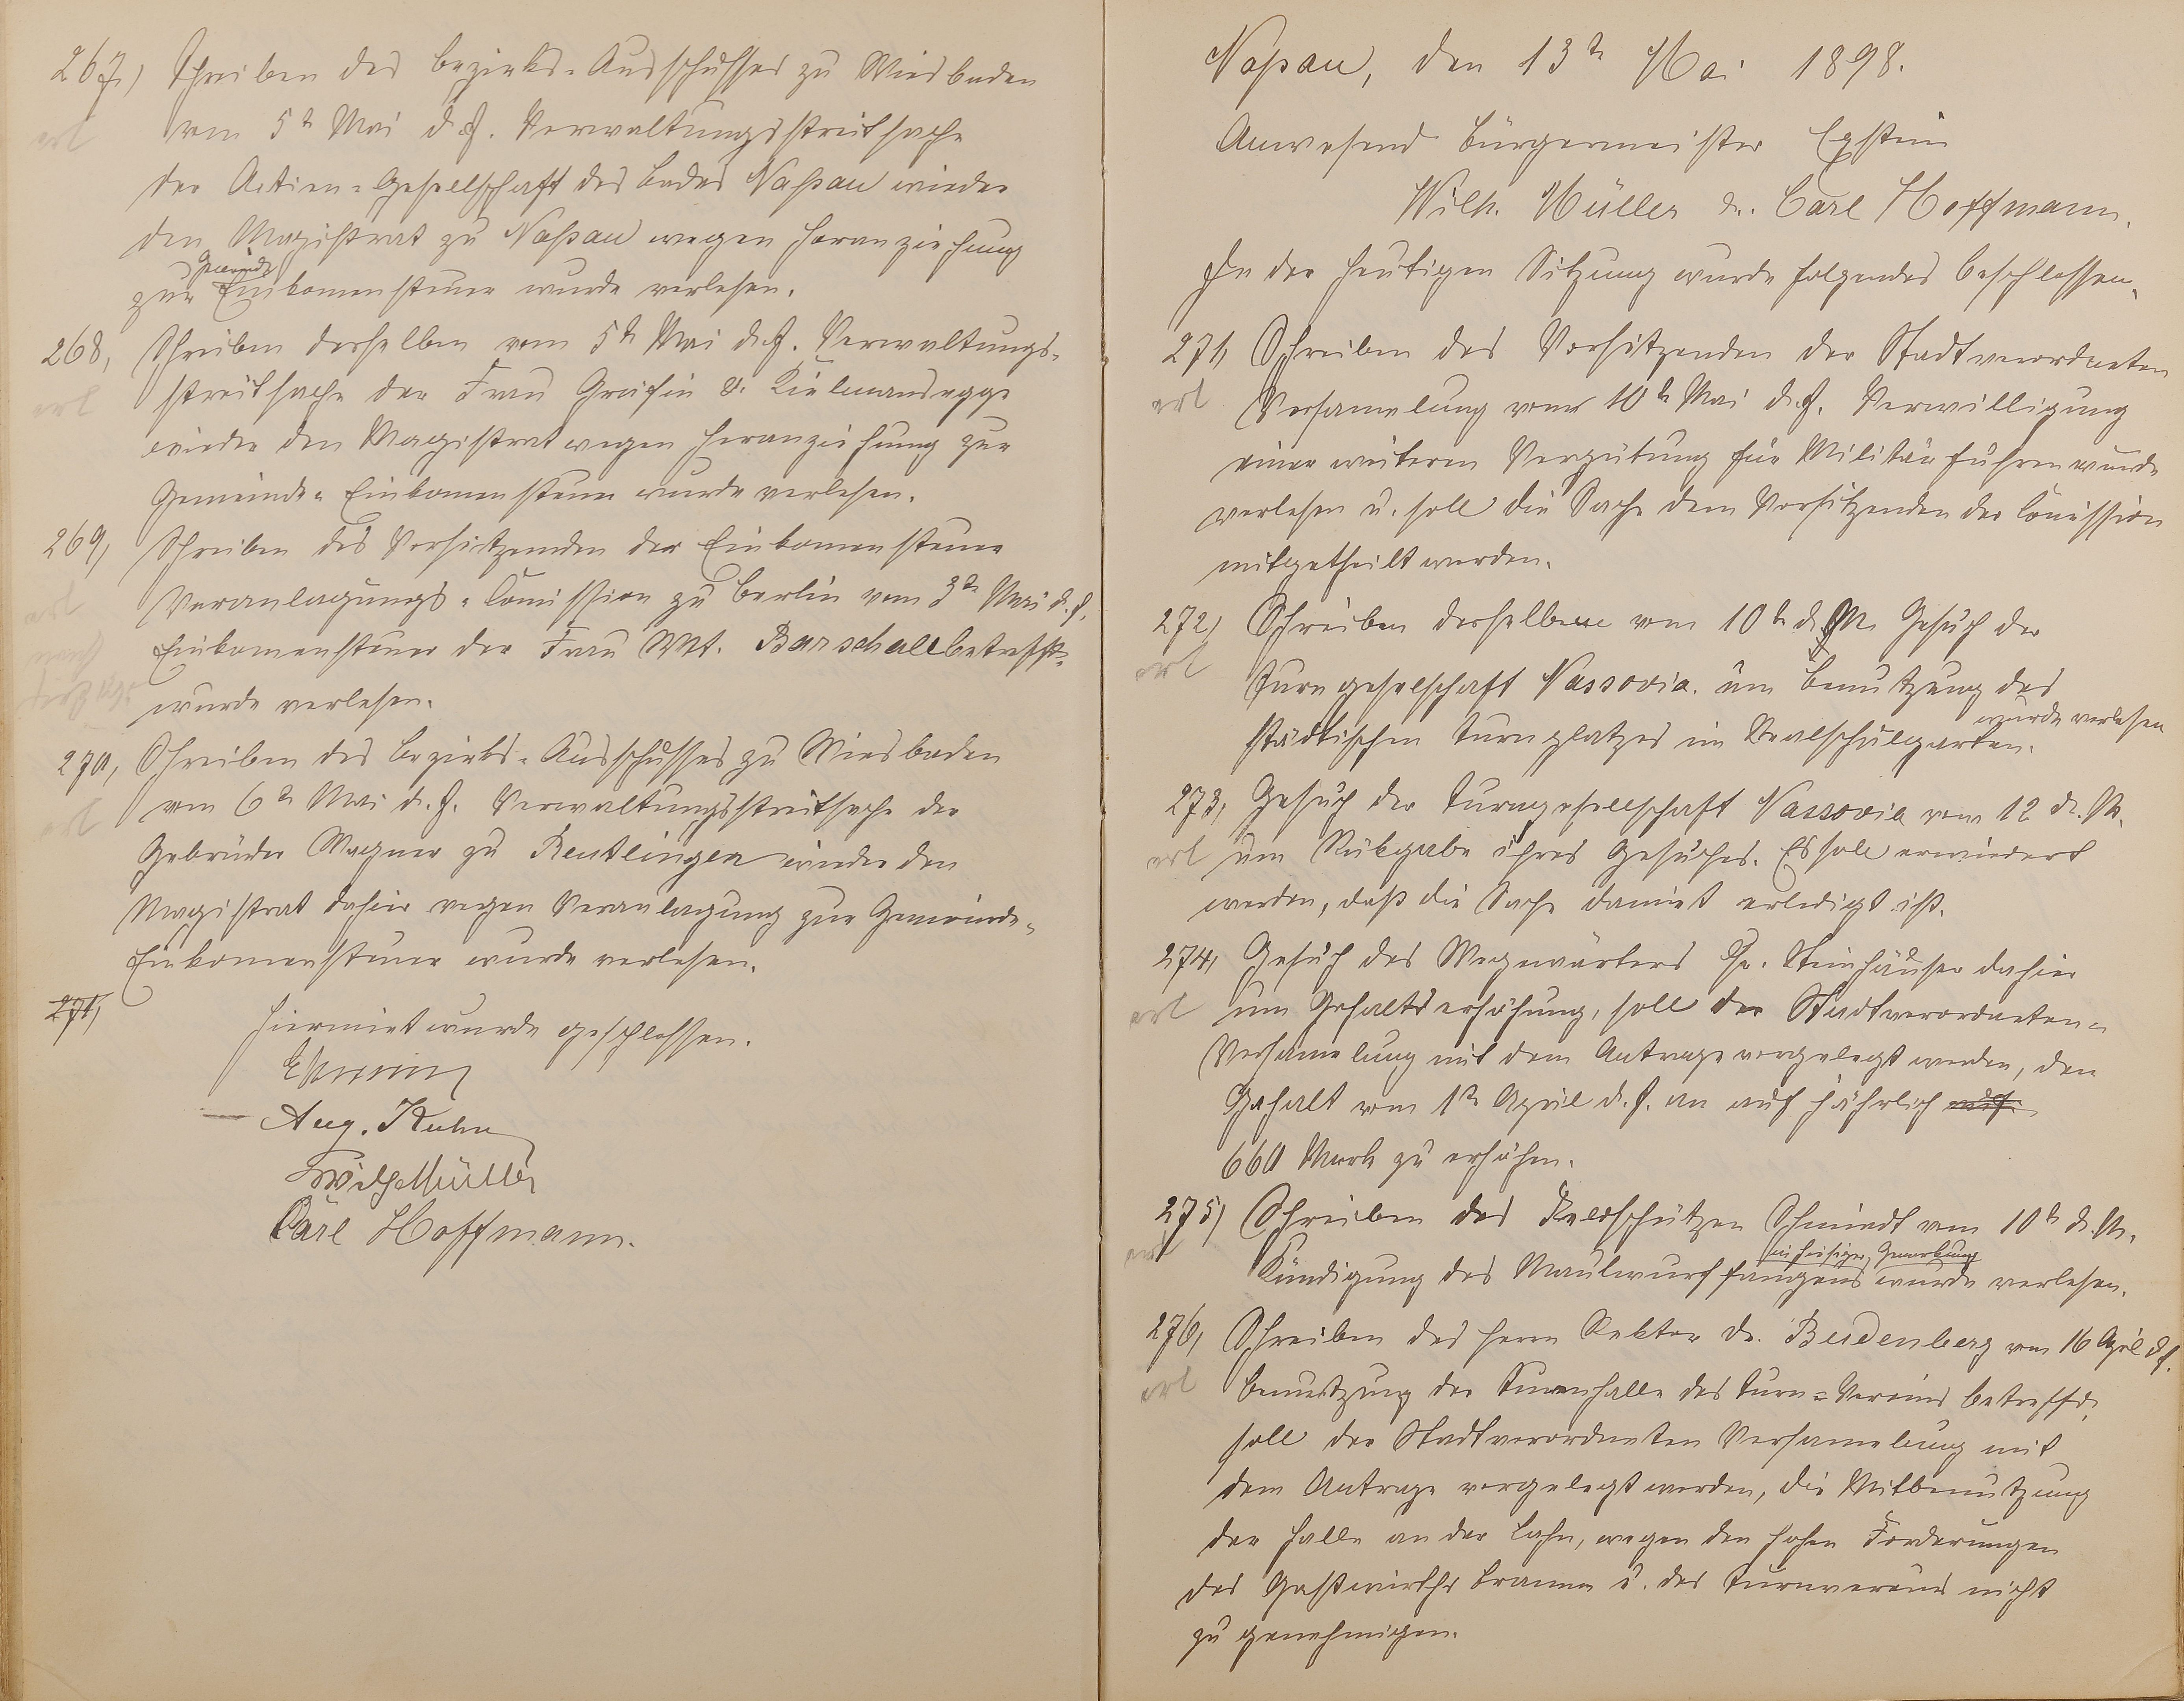 267,) Schreiben des Bezirks-Ausschusses zu Wiesbaden
erl vom 5t Mai d. J. Verwaltungsstreitsache
der Actien-Gesellschaft des Bades Naßau wieder
den Magistrat zu Naßau wegen Heranziehung
Gemeinde
zur Einkomensteuer wurde verlesen.
268, Schreiben desselben vom 5t Mai d. J. Verwaltungs-
erl streitsache der Frau Gräfin v. Kielmansegge
wieder den Magistrat wegen Heranziehung zur
Gemeinde-Einkomensteuer wurde verlesen.
269, Schreiben des Vorsitzenden der Einkomensteuer
Veranlagungs-Comission zu Berlin vom 3t Mai d. J.
Einkomensteuer der Frau Wt. Barschall betreffd.
wurde verlesen.
270, Schreiben des Bezirks-Ausschusses zu Wiesbaden
erl vom 6t Mai d. J. Verwaltungsstreitsache der
Gebrüder Wagner zu Reutlingen wieder den
Magistrat dahier wegen Veranlagung zur Gemeinde-
Einkomensteuer wurde verlesen.
271,
Hiermit wurde geschlossen.
Aug. Kuhn
Wilh Müller
Carl Hoffmann.
Naßau, den 13t Mai 1898.
Anwesend Bürgermeister Epstein
Wilh. Müller u. Carl Hoffmann.
In der heutigen Sitzung wurde folgendes beschlossen.
271, Schreiben des Vorsitzenden der Stadtverordneten
erl Versamelung vom 10t Mai d. J. Verwilligung
einer weiteren Vergütung für Militärfuhren wurde
verlesen u. soll die Sache dem Vorsitzenden der Comission
mitgetheilt werden.
272,) Schreiben desselben vom 10t d. M. Gesuch der
erl Turngeselschaft Nassovia. um Benutzung des
wurde verlesen
städtischen Turnplatzes im Realschulgarten.
273, Gesuch der Turngesellschaft Nassovia vom 12 d. M.
erl um Rükgabe ihres Gesuches. Es soll erwiedert
werden, daß die Sache damit erledigt ist.
274, Gesuch des Wegewärters Steinhäuser dahier
erl um Gehaltserhöhung, soll der Stadtverordneten-
Versamelung mit dem Antrage vorgelegt werden, den
Gehalt vom 1t April d. J. an auf jährlich auf
660 Mark zu erhöhen.
275,) Schreiben des Feldschützen Schmidt vom 10t d. M.
in hiesiger Gemarkung
erl Kündigung des Maulwurffangens wurde verlesen.
276, Schreiben des Herrn Rektor Dr. Budenberg vom 16 April d. J.
erl Benutzung der Turnhalle des Turn-Vereins betreffd.
soll der Stadtverordneten Versamelung mit
dem Antrage vorgelegt werden, die Mitbenutzung
der Halle an der Lahn, wegen den hohen Forderungen
des Gastwirths Bramm u. des Turnvereins nicht
zu genehmigen.